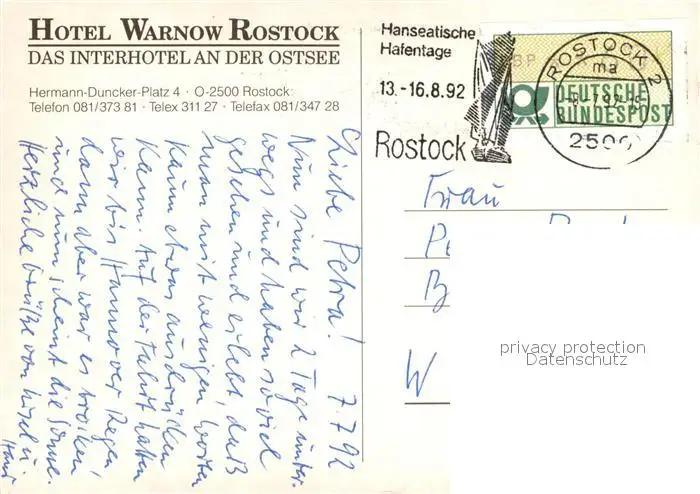 HOTEL WARNOW ROSTOCK
DAS INTERHOTEL AN DER OSTSEE
Hermann-Duncker-Platz 4 · O-2500 Rostock
Telefon 081/373 81 · Telex 311 27 · Telefax 081/347 28
Hanseatische
Hafentage
13.-16.8.92
Rostock
ROSTOCK 2
ma
2500
DBP
DEUTSCHE
BUNDESPOST
7.7.92
Liebe Petra!
Nun sind wir 2 Tage unter-
wegs und haben soviel
gesehen und erlebt, daß
man mit wenigen Worten
kaum etwas ausdrücken
kann. Auf der Fahrt hatten
wir bis Hannover Regen
dann aber war es trocken
und nun scheint die Sonne.
Herzliche Grüße von
Frau
P
B
W
privacy protection
Datenschutz